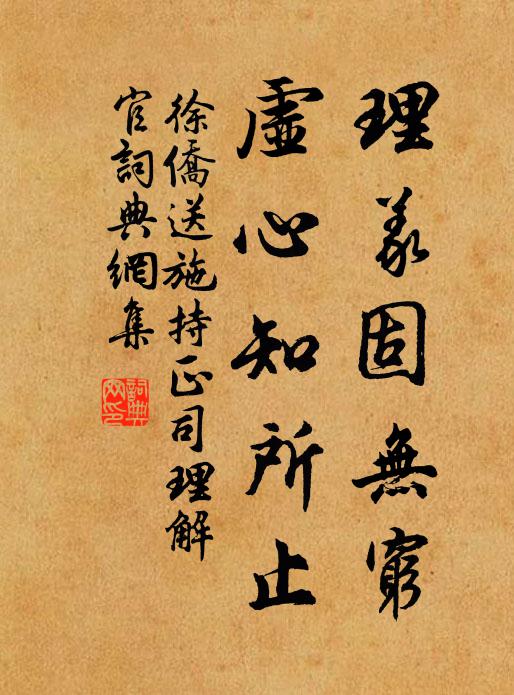 理義固無窮
虛心知所止
徐僑送施持正司理解
官詞典網集
詞典網印